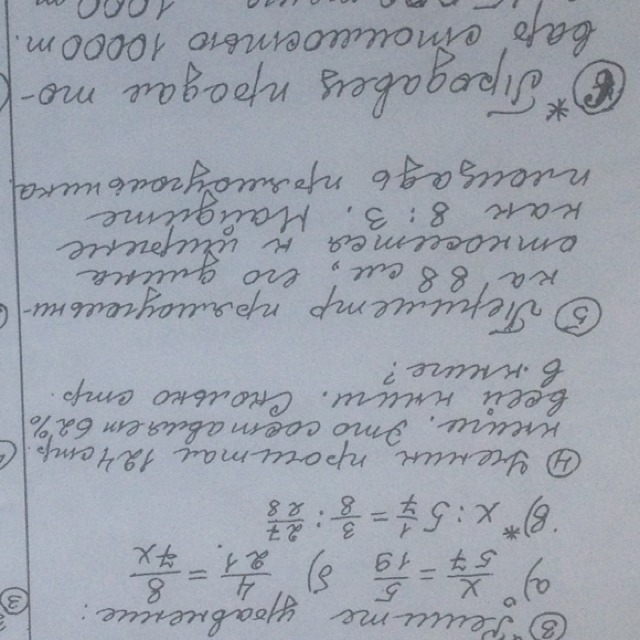 ③ Решите уравнение:
а)° x/57 = 5/19 б) 4/21 = 8/7x
в)* x : 5 1/7 = 3/8 : 27/28
④ Ученик прочитал 124 стр.
книги. Это составляет 62%
всей книги. Сколько стр.
в книге?
⑤ Периметр прямоугольни-
ка 88 см, его длина
относится к ширине
как 8 : 3. Найдите
площадь прямоугольника.
⑥* Продавец продал то-
вар стоимостью 10000 т.